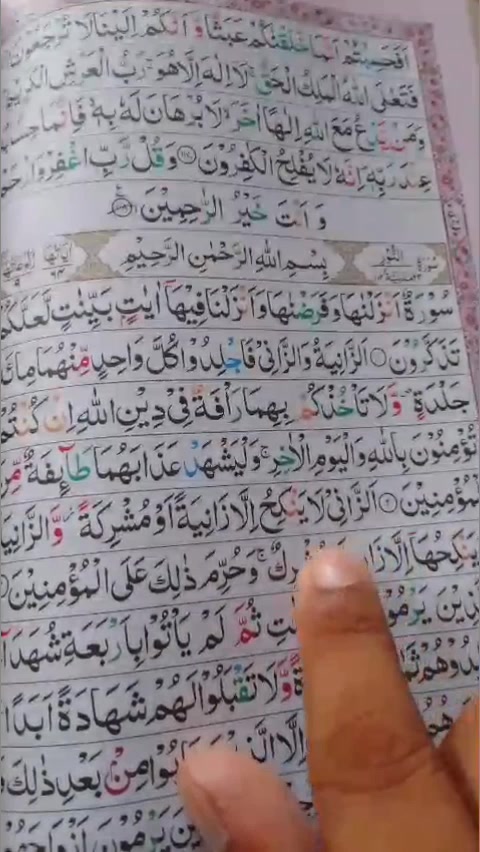 اَفَحَسِبْتُمْ اَنَّمَا خَلَقْنٰكُمْ عَبَثًا وَّ اَنَّكُمْ اِلَيْنَا لَا تُرْجَعُوْنَ
فَتَعٰلَى اللّٰهُ الْمَلِكُ الْحَقُّ ۚ لَاۤ اِلٰهَ اِلَّا هُوَ ۚ رَبُّ الْعَرْشِ الْكَرِيْمِ
وَمَنْ يَّدْعُ مَعَ اللّٰهِ اِلٰهًا اٰخَرَ ۙ لَا بُرْهَانَ لَهٗ بِهٖ ۙ فَاِنَّمَا حِسَابُهٗ
عِنْدَ رَبِّهٖ ؕ اِنَّهٗ لَا يُفْلِحُ الْكٰفِرُوْنَ ۝ وَقُلْ رَّبِّ اغْفِرْ وَارْحَمْ
وَ اَنْتَ خَيْرُ الرّٰحِمِيْنَ
سُوْرَةُ النُّوْرِ بِسْمِ اللّٰهِ الرَّحْمٰنِ الرَّحِيْمِ
سُوْرَةٌ اَنْزَلْنٰهَا وَفَرَضْنٰهَا وَاَنْزَلْنَا فِيْهَاۤ اٰيٰتٍۭ بَيِّنٰتٍ لَّعَلَّكُمْ
تَذَكَّرُوْنَ ۝ اَلزَّانِيَةُ وَالزَّانِيْ فَاجْلِدُوْا كُلَّ وَاحِدٍ مِّنْهُمَا مِائَةَ
جَلْدَةٍ ۪ وَّلَا تَاْخُذْكُمْ بِهِمَا رَاْفَةٌ فِيْ دِيْنِ اللّٰهِ اِنْ كُنْتُمْ
تُؤْمِنُوْنَ بِاللّٰهِ وَالْيَوْمِ الْاٰخِرِ ۚ وَلْيَشْهَدْ عَذَابَهُمَا طَآئِفَةٌ مِّنَ
الْمُؤْمِنِيْنَ ۝ اَلزَّانِيْ لَا يَنْكِحُ اِلَّا زَانِيَةً اَوْ مُشْرِكَةً ۫ وَّالزَّانِيَةُ
يَنْكِحُهَاۤ اِلَّا زَانٍ ۚ وَحُرِّمَ ذٰلِكَ عَلَى الْمُؤْمِنِيْنَ
يَرْمُوْنَ ثُمَّ لَمْ يَاْتُوْا بِاَرْبَعَةِ شُهَدَآءَ
وَّلَا تَقْبَلُوْا لَهُمْ شَهَادَةً اَبَدًا
اِلَّا مِنْۢ بَعْدِ ذٰلِكَ
يَرْمُوْنَ اَزْوَاجَهُمْ